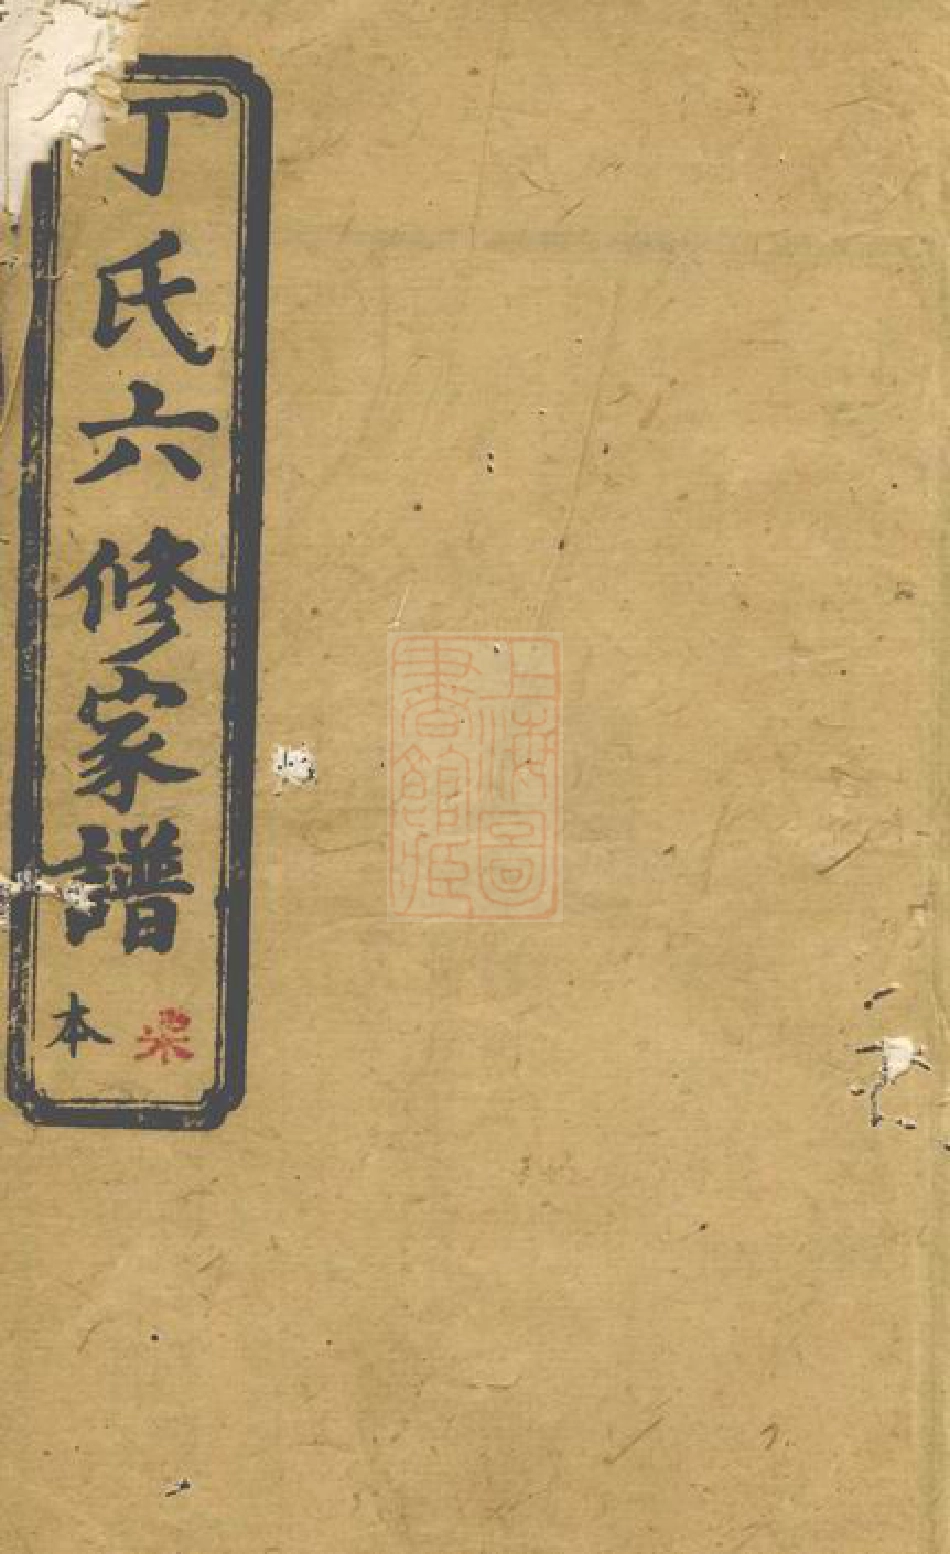 丁氏六修家譜
本
上海圖書館藏